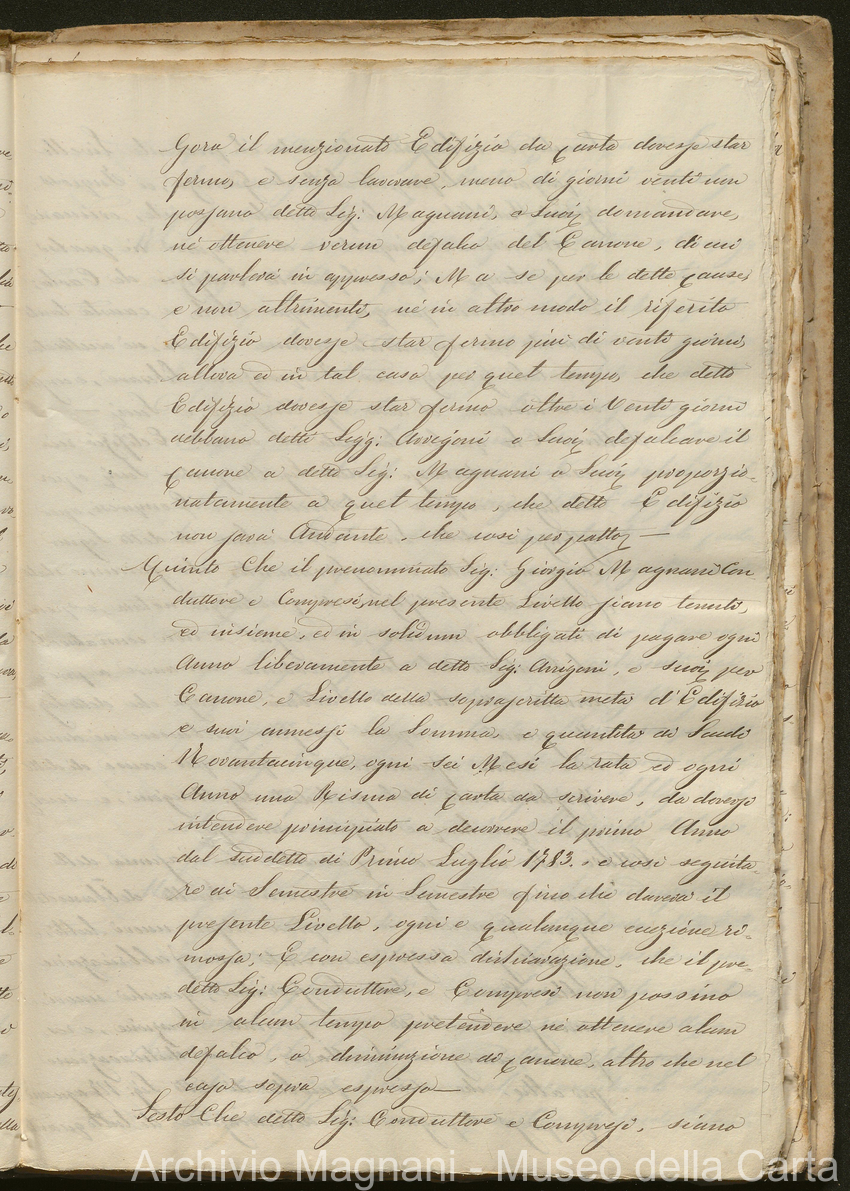 Gora il menzionato Edifizio da Carta dovesse star
fermo, e senza lavorare, meno di giorni venti non
possano detto Sig: Magnani, o Suoi domandare,
nè ottenere verun defalco del Canone, di cui
si parlerà in appresso; Ma se per le dette cause,
e non altrimenti, nè in altro modo il riferito
Edifizio dovesse star fermo più di venti giorni,
allora ed in tal caso per quel tempo, che detto
Edifizio dovesse star fermo oltre i Venti giorni
debbano detti Sigg: Arrigoni o Suoi defalcare il
Canone a detto Sig: Magnani o Suoi proporzio-
natamente a quel tempo, che detto Edifizio
non sarà Andante, che così per patto —
Quinto Che il prenominato Sig: Giorgio Magnani Con
duttore e Compresi, nel presente Livello siano tenuti,
ed insieme, ed in solidum obbligati di pagare ogni
Anno liberamente a detto Sig: Arrigoni, e suoi per
Canone, e Livello della soprascritta metà d'Edifizio
e suoi annessi la Somma, e quantità di Scudi
Novantacinque, ogni sei Mesi la rata ed ogni
Anno una Risma di Carta da scrivere, da doversi
intendere principiato a decorrere il primo Anno
dal suddetto dì Primo Luglio 1783. e così seguita-
re di Semestre in Semestre fino che durerà il
presente Livello, ogni e qualunque eccezione ri-
mossa; E con espressa dichiarazione, che il pre-
detto Sig: Conduttore, e Compresi non possino
in alcun tempo pretendere nè ottenere alcun
defalco, o diminuzione di Canone, altro che nel
caso sopra espresso —
Sesto Che detto Sig: Conduttore e Compresi, siano
Archivio Magnani - Museo della Carta